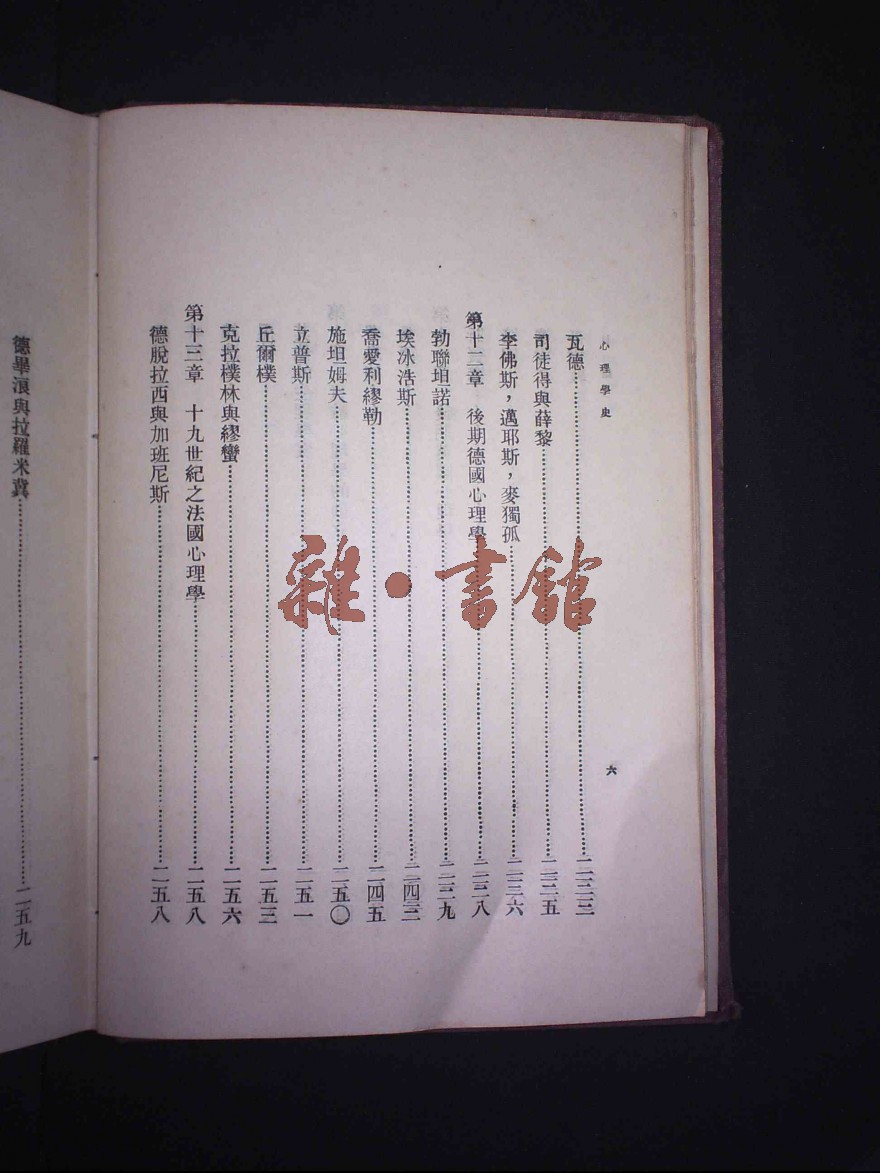 心理學史
六
瓦德⋯⋯二三三
司徒得與薛黎⋯⋯二三五
李佛斯，邁耶斯，麥獨孤⋯⋯二三六
第十二章　後期德國心理學⋯⋯二三八
勃聯坦諾⋯⋯二三九
埃冰浩斯⋯⋯二四三
喬愛利繆勒⋯⋯二四五
施坦姆夫⋯⋯二五〇
立普斯⋯⋯二五一
丘爾樸⋯⋯二五三
克拉樸林與繆蠻⋯⋯二五六
第十三章　十九世紀之法國心理學⋯⋯二五八
德脫拉西與加班尼斯⋯⋯二五八
德畢浪與拉羅米冀⋯⋯二五九
雜・書館